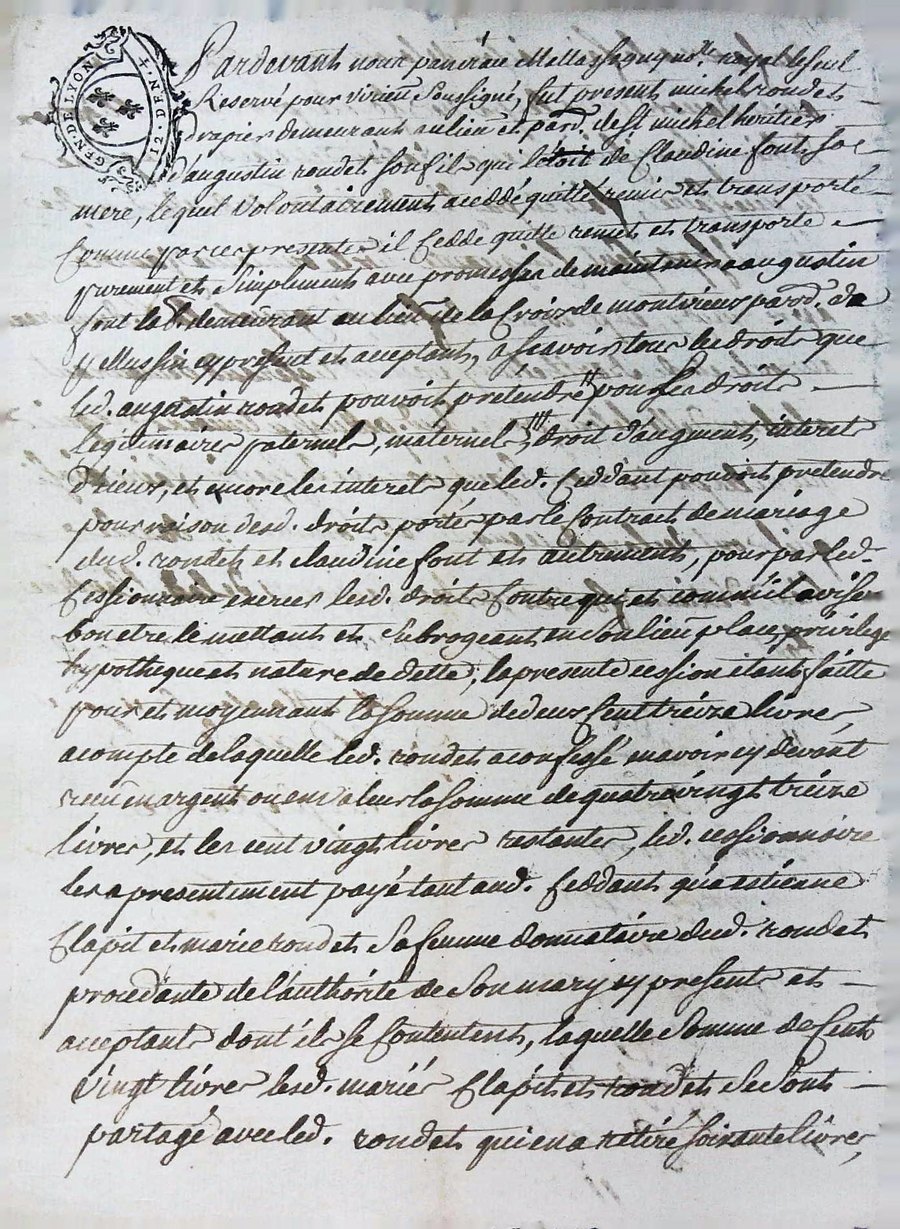 GEN. DE LYON 4. F. N. D. 2. S.
Pardevant nous notre royal le seul
Reservé pour virieu soussigné, fut present michel rondet
drapier demeurant au lieu et parr. de st michel heritier
d'augustin rondet son fil qui l'étoit de Claudine font sa
mere, lequel volontairement a ceddé quitté remis et transporté
Comme par ces presente il cedde quitte remet et transporte
purement et simplement avec promesse de maintenir a augustin
font lab. demeurant au lieu de la Croix de montvieux parr. de
pelussin cy present et acceptant, a scavoir tous les droit que
led. augustin rondet pouvoit pretendre pour ses droit
legitimaire paternel, maternel, droit d'augment, interet
d'iceux, et encore les interet que led. Ceddant pouvoit pretendre
pour raison desd. droit portés par le Contract de mariage
dud. rondet et claudine font et autrement, pour par led.
Cessionnaire exercer lesd. droit Contre qui et comm'il avisera
bon etre le mettant et subrogeant en son lieu place, privilege
hypotheque et nature de dette, la presente cession etant faitte
pour et moyennant la somme de deux Cent treize livres,
acompte de laquelle led. rondet a confessé m avoir cy devant
receu en argent ou en valeur la somme de quatrevingt treize
livres, et les cent vingt livres restante, led. cessionnaire
les a presentement payé tant aud. Ceddant qu'a estienne
Clapit et marie rondet sa femme donnataire dud. rondet
procedante de l'authorité de son mary cy present et
acceptant dont ils se Contentent, laquelle somme de Cent
vingt livres lesd. mariés Clapit et rondet se sont
partagé avec led. rondet qui en a retiré soixante livres,